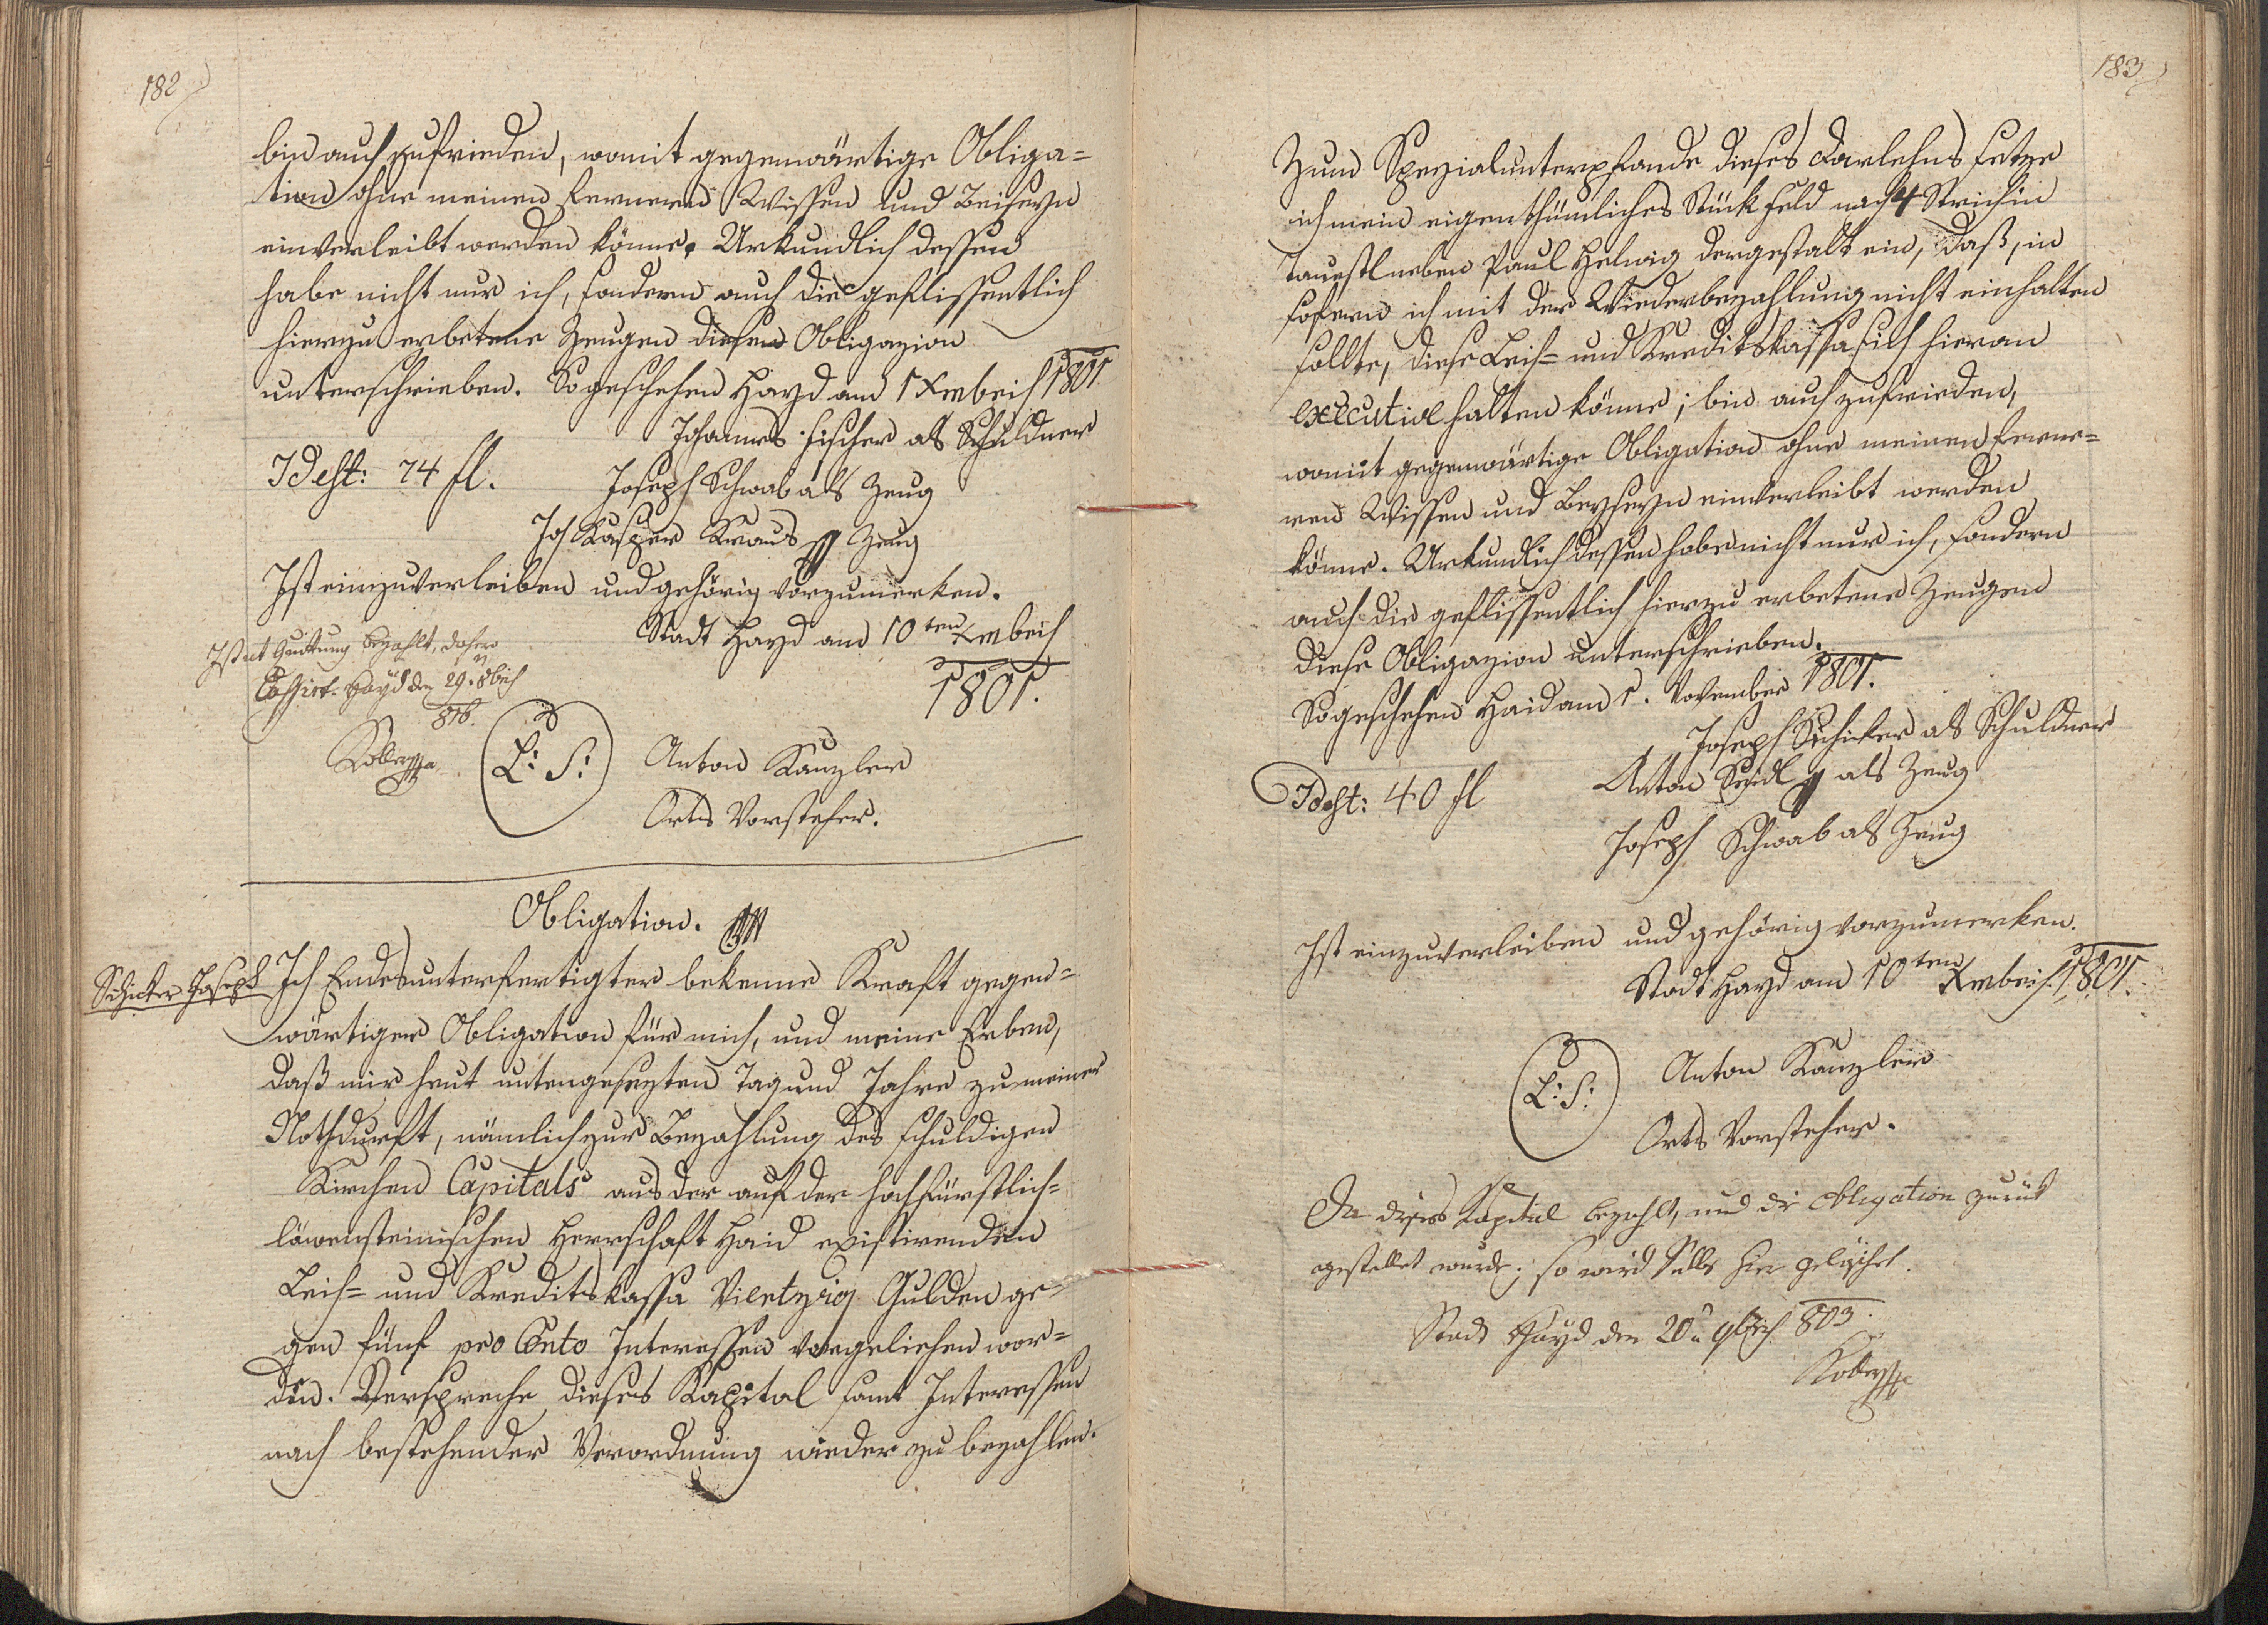 182
bin auch zufrieden, womit gegenwärtige Obliga=
tion ohne meinen fernern Wissen und Beiseyn
einverleibt werden könne. Urkundlich dessen
habe nicht nur ich, sondern auch die geflissentlich
hierzu erbetene Zeugen diese Obligazion
unterschrieben. So geschehen Hayd am 1 Xembris 1801.
Johannes Fischer als Schuldner
Idest: 74 fl. Joseph Schwab als Zeug
Jos Kasper Kraus Zeug
Ist einzuverleiben und gehörig vorzumerken.
Stadt Hayd am 10ten Xembris
1801.
Ist mit Quittung bezahlt, dahero
Cassirt. Hayd den 29. 8bris
816.
L: S: Anton Kanzler
Orts Vorsteher.
Obligation.
Schicker Joseph
Ich Endesunterfertigter bekenne Kraft gegen=
wärtiger Obligation für mich, und meine Erben,
daß mir heut untengesezten Tag und Jahre zu meiner
Nothdurft, nämlich zur Bezahlung des schuldigen
Kirchen Capitals aus der auf der hochfürstlich=
löwensteinischen Herrschaft Haid existirenden
Leih= und Kreditskassa Vierzig Gulden ge=
gen fünf pro Cento Interessen vorgeliehen wor=
den. Verspreche dieses Kapital samt Interessen
nach bestehender Verordnung wieder zu bezahlen.
183
Zum Spezialunterpfande dieses Darlehns setze
ich mein eigenthümliches Stück Feld nach 4 Strich in
neben Paul Helwig dergestalt ein, daß, in
sofern ich mit der Wiederbezahlung nicht einhalten
sollte, diese Leih= und Kreditskassa sich hieran
executive halten könne; bin auch zufrieden,
womit gegenwärtige Obligation ohne meinen ferne=
ren Wissen und Beyseyn einverleibt werden
könne. Urkundlich dessen habe nicht nur ich, sondern
auch die geflissentlich hierzu erbetene Zeugen
diese Obligazion unterschrieben.
So geschehen Haid am 1. November 1801.
Joseph Schicker als Schuldner
Idest: 40 fl Anton Seidl als Zeug
Joseph Schwab als Zeug
Ist einzuverleiben und gehörig vorzumerken.
Stadt Hayd am 10ten Xembris. 1801.
L: S: Anton Kanzler
Orts Vorsteher.
Da dieses Kapital bezahlt, und die Obligation zurük
gestellet wurde; so wird selbe hier gelöschet.
Stadt Hayd den 20n 9bris 803.